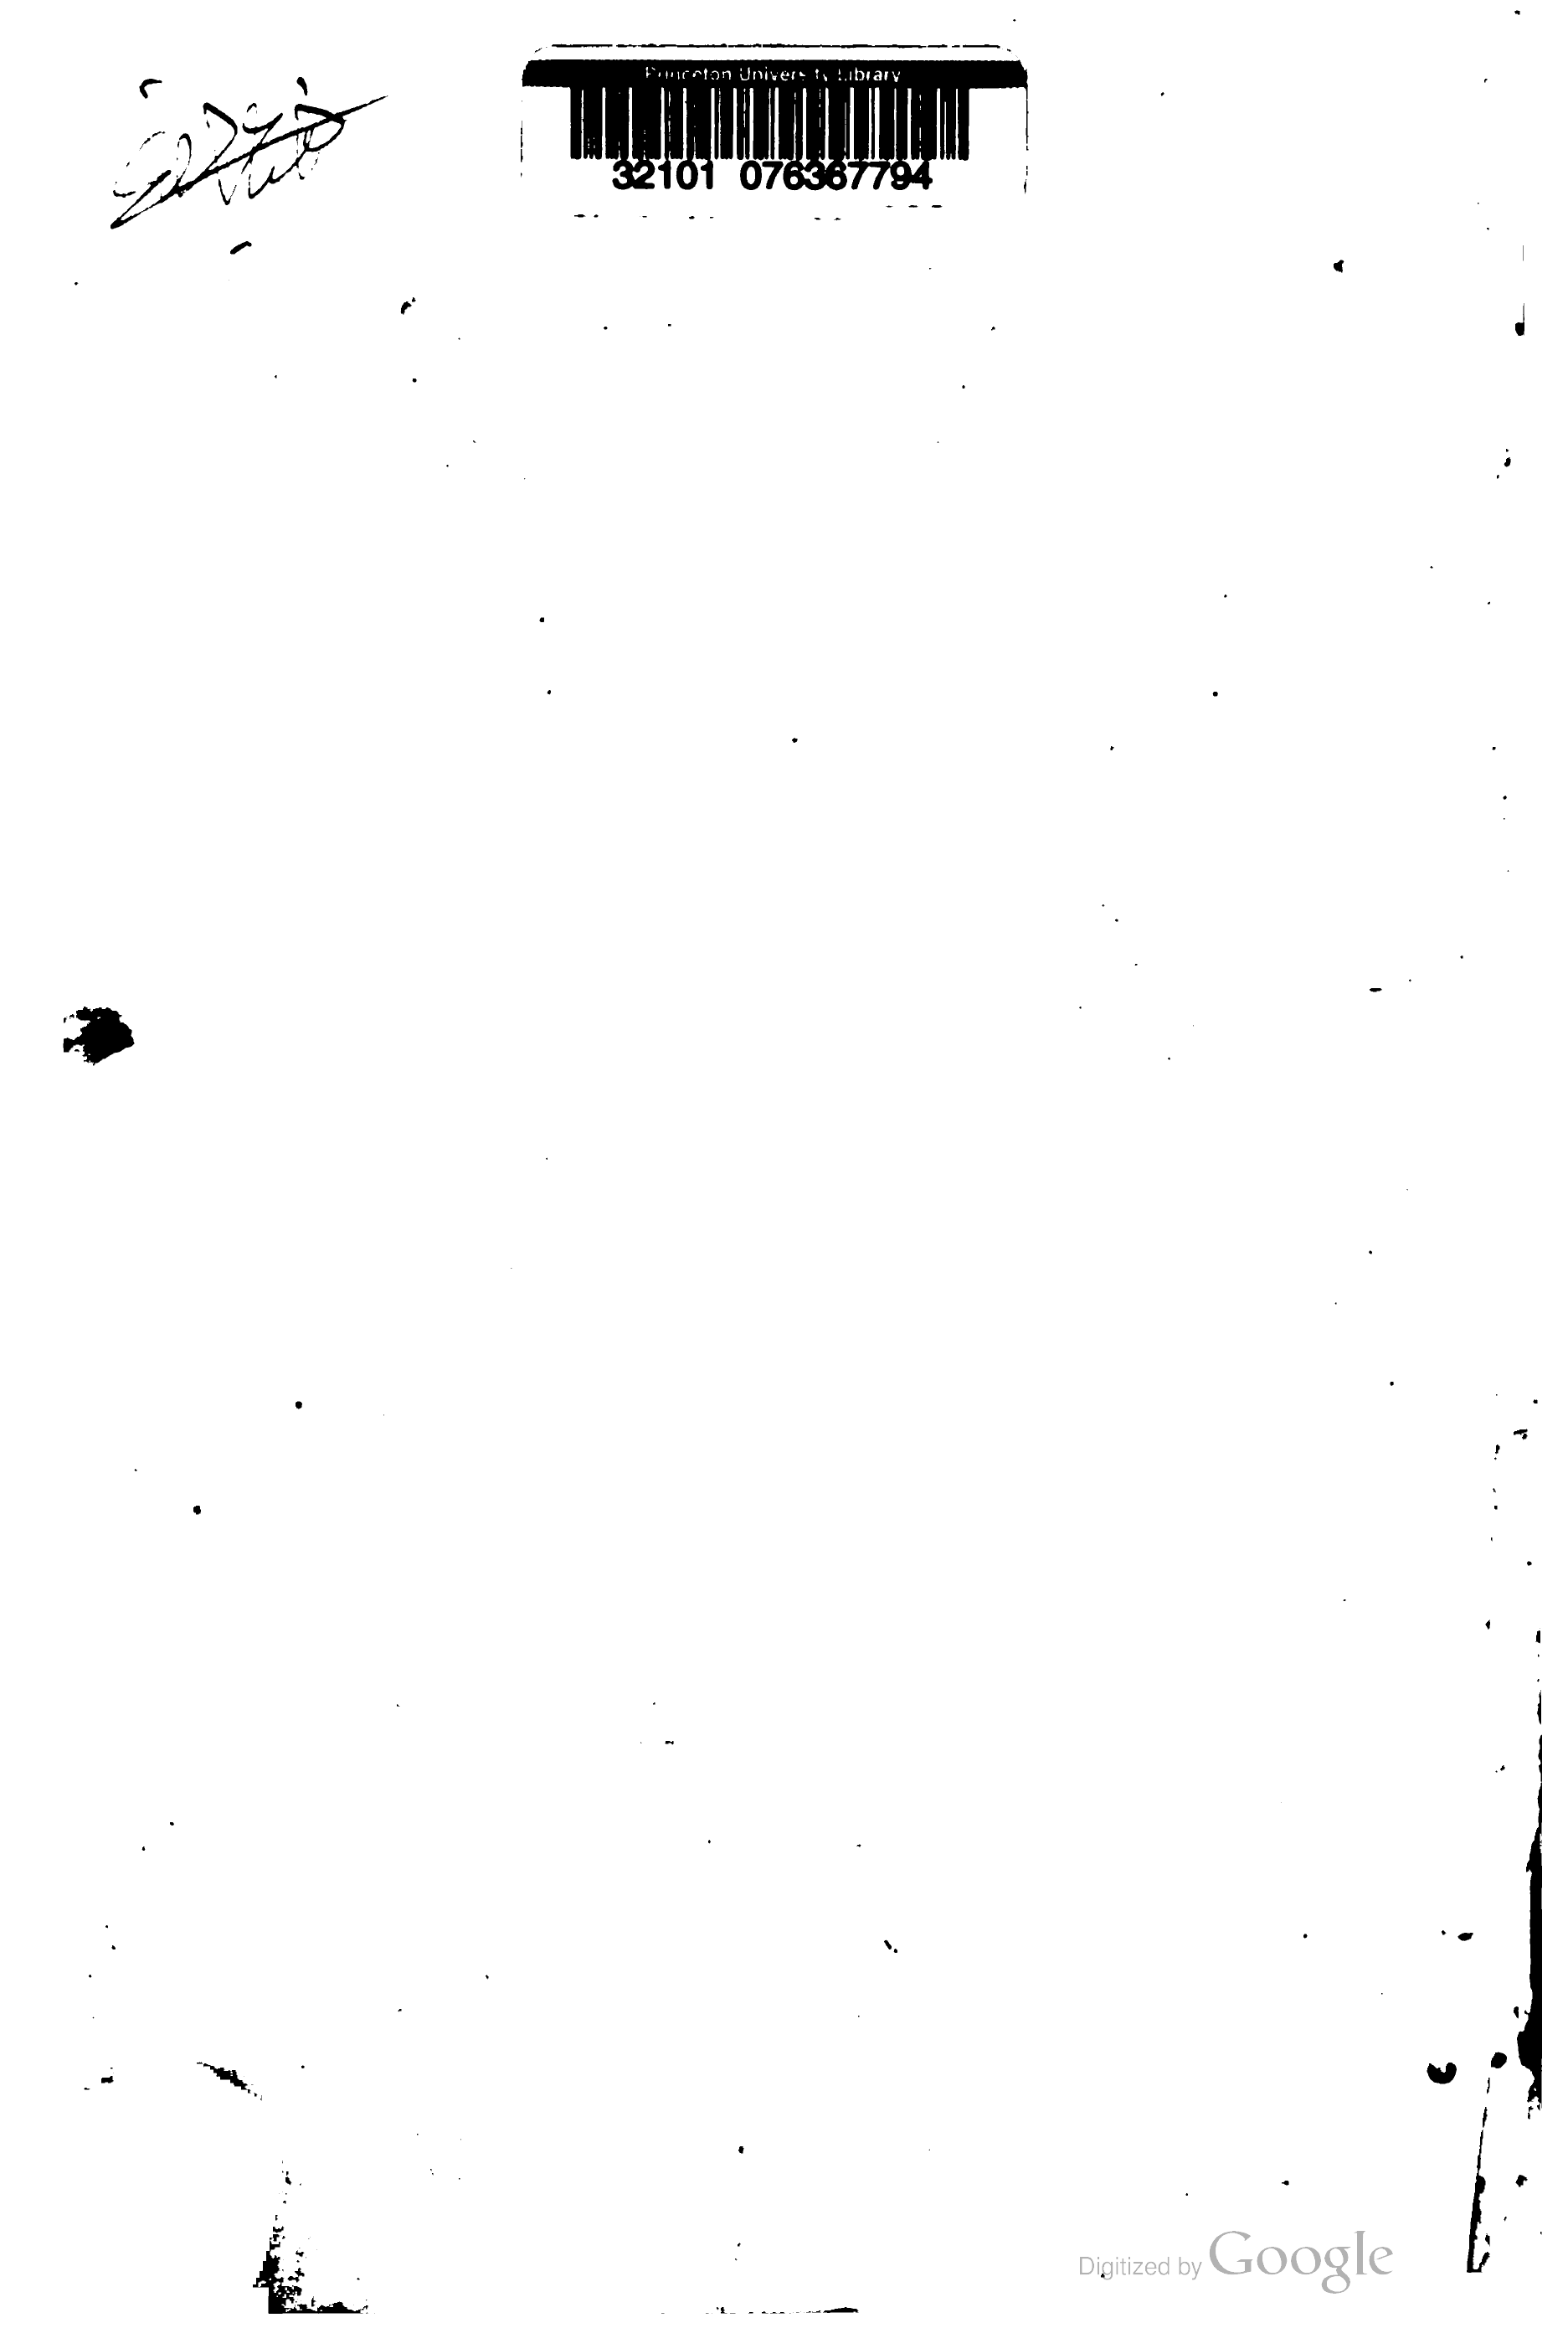 Princeton University Library
32101 076367794
Digitized by Google